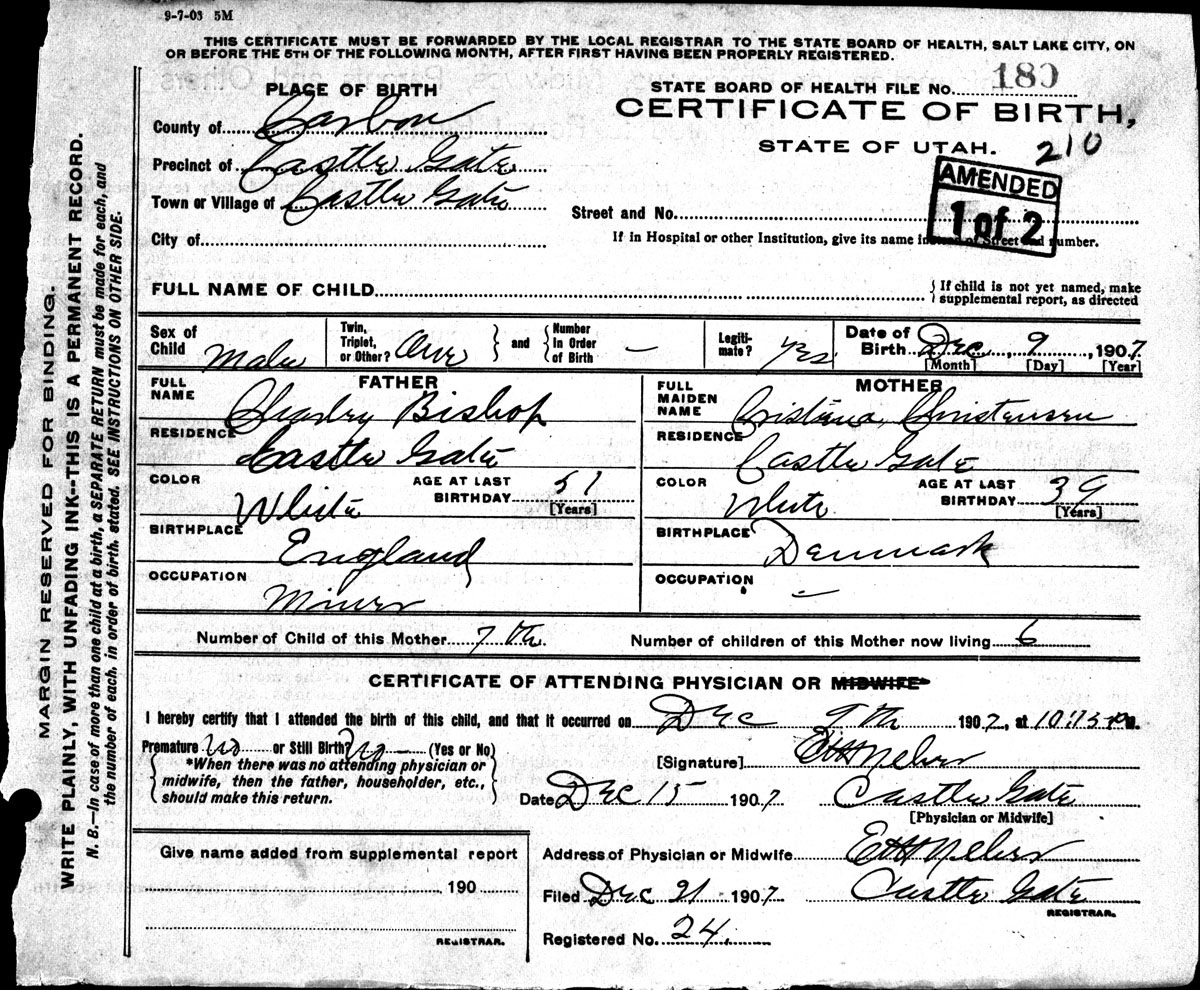 9-7-03 5M
THIS CERTIFICATE MUST BE FORWARDED BY THE LOCAL REGISTRAR TO THE STATE BOARD OF HEALTH, SALT LAKE CITY, ON
OR BEFORE THE 5TH OF THE FOLLOWING MONTH, AFTER FIRST HAVING BEEN PROPERLY REGISTERED.
PLACE OF BIRTH
STATE BOARD OF HEALTH FILE NO. 180
CERTIFICATE OF BIRTH,
STATE OF UTAH. 210
County of Carbon
Precinct of Castle Gate
Town or Village of Castle Gate
City of
AMENDED
1 of 2
Street and No.
If in Hospital or other Institution, give its name instead of Street and number.
FULL NAME OF CHILD
{ If child is not yet named, make
supplemental report, as directed
Sex of Child Male
Twin, Triplet, or Other? One } and { Number In Order of Birth –
Legiti-mate? Yes
Date of Birth Dec, 9, 1907
[Month] [Day] [Year]
FATHER
FULL NAME Charley Bishop
RESIDENCE Castle Gate
COLOR White AGE AT LAST BIRTHDAY 51 [Years]
BIRTHPLACE England
OCCUPATION Miner
MOTHER
FULL MAIDEN NAME Cristiana Christensen
RESIDENCE Castle Gate
COLOR White AGE AT LAST BIRTHDAY 39 [Years]
BIRTHPLACE Denmark
OCCUPATION –
Number of Child of this Mother 7th Number of children of this Mother now living 6
CERTIFICATE OF ATTENDING PHYSICIAN OR MIDWIFE
I hereby certify that I attended the birth of this child, and that it occurred on Dec 9th 1907, at 10:15 P M.
Premature no or Still Birth? no (Yes or No)
{ *When there was no attending physician or
midwife, then the father, householder, etc.,
should make this return. }
[Signature]
Date Dec 15 1907 Castle Gate
[Physician or Midwife]
Address of Physician or Midwife
Filed Dec 21 1907 Castle Gate
REGISTRAR.
Registered No. 24
Give name added from supplemental report
190
REGISTRAR.
MARGIN RESERVED FOR BINDING.
WRITE PLAINLY, WITH UNFADING INK--THIS IS A PERMANENT RECORD.
N. B.—In case of more than one child at a birth, a SEPARATE RETURN must be made for each, and
the number of each, in order of birth, stated. SEE INSTRUCTIONS ON OTHER SIDE.